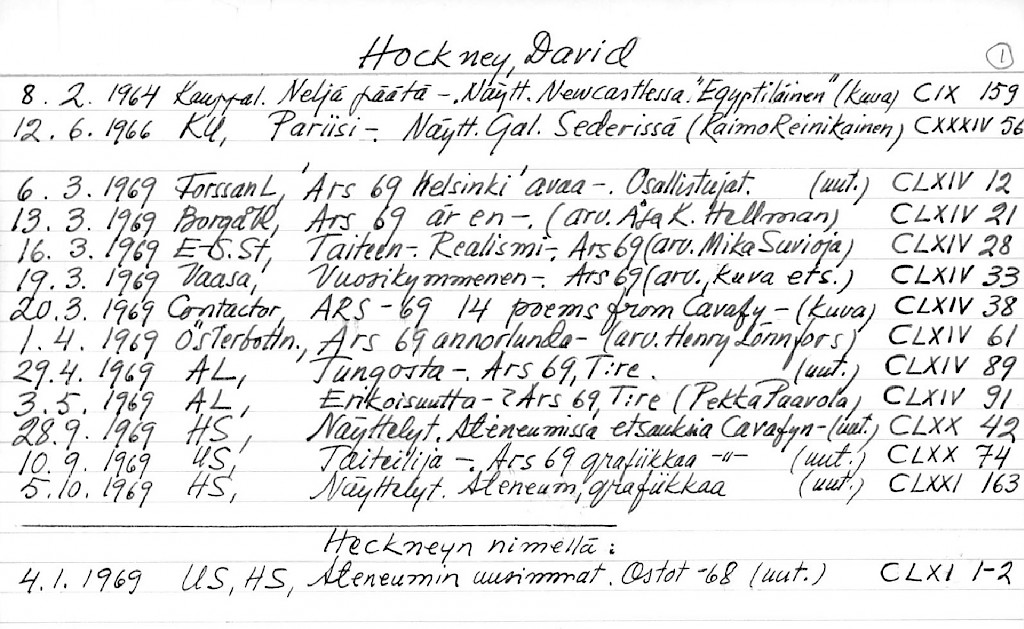 Hockney, David 1
8. 2. 1964 Kauppal. Neljä päätä -. Näytt. Newcastlessa. "Egyptiläinen" (kuva) CIX 159
12. 6. 1966 KU, Pariisi -. Näytt. Gal. Sederissä (Raimo Reinikainen) CXXXIV 56
6. 3. 1969 ForssanL, 'Ars 69 Helsinki' avaa -. Osallistujat. (uut.) CLXIV 12
13. 3. 1969 Borgåbl, Ars 69 är en -. (arv. Aja K. Hellman) CLXIV 21
16. 3. 1969 E-S.St, Taiteen -. Realismi -. Ars 69 (arv. Mika Suvioja) CLXIV 28
19. 3. 1969 Vaasa, Vuosikymmenen -. Ars 69 (arv., kuva ets.) CLXIV 33
20. 3. 1969 Contactor, ARS - 69 14 poems from Cavafy - (kuva) CLXIV 38
1. 4. 1969 Österbottn., Ars 69 annorlunda - (arv. Henry Lönnfors) CLXIV 61
29. 4. 1969 AL, Tungosta -. Ars 69, T:re. (uut.) CLXIV 89
3. 5. 1969 AL, Erikoisuutta - ? Ars 69, T:re (Pekka Paavola) CLXIV 91
28. 9. 1969 HS, Näyttelyt. Ateneumissa etsauksia Cavafyn - (uut.) CLXX 42
10. 9. 1969 US, Taiteilija -. Ars 69 grafiikkaa -"- (uut.) CLXX 74
5. 10. 1969 HS, Näyttelyt. Ateneum, grafiikkaa (uut.) CLXXI 163
Heckneyn nimellä :
4. 1. 1969 US, HS, Ateneumin uusimmat. Ostot -68 (uut.) CLXI 1-2